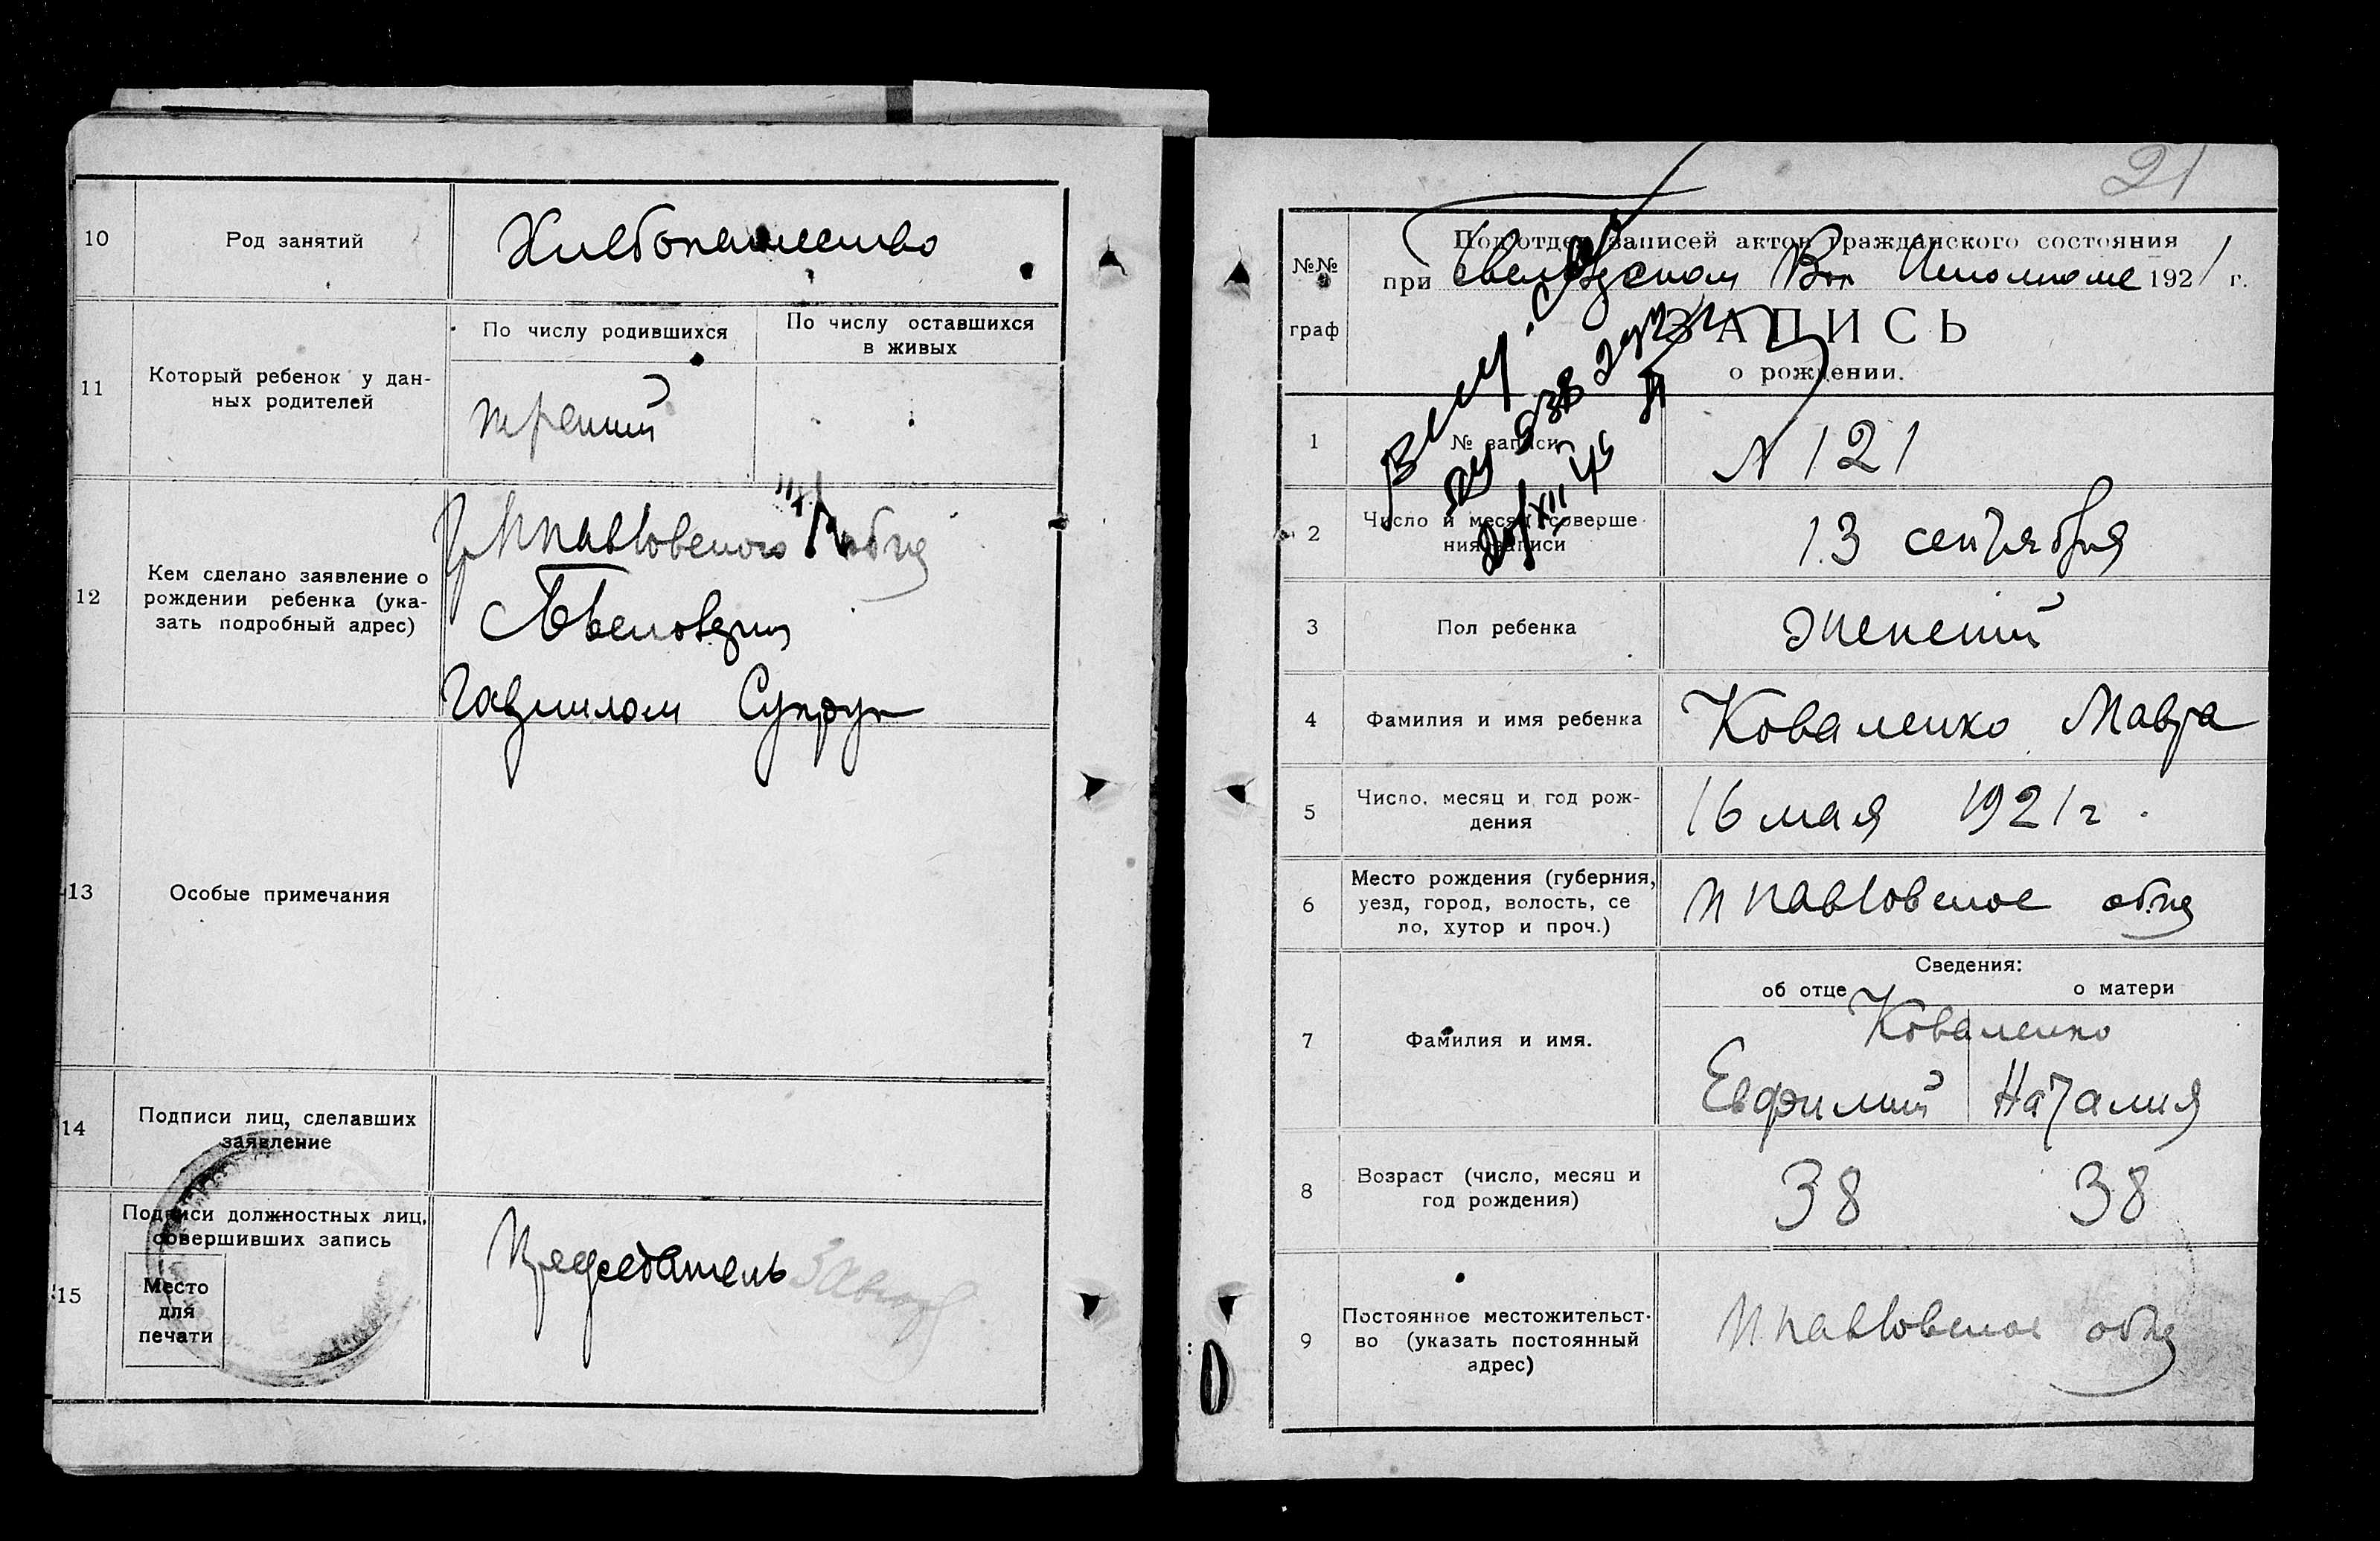 10
Род занятий
Хлебопашество
11
Который ребенок у дан-
ных родителей
По числу родившихся
По числу оставшихся
в живых
третий
12
Кем сделано заявление о
рождении ребенка (ука-
зать подробный адрес)
Гавриилом Супрун
13
Особые примечания
14
Подписи лиц, сделавших
заявление
15
Подписи должностных лиц,
совершивших запись
Место
для
печати
Председатель
21
№№
граф
Подотдел записей актов гражданского состояния
при Вол Исполкоме 1921 г.
ЗАПИСЬ
о рождении.
1
№ записи
N 121
2
Число и месяц соверше
ния записи
13 сентября
3
Пол ребенка
женский
4
Фамилия и имя ребенка
Коваленко Мавра
5
Число, месяц и год рож-
дения
16 мая 1921 г.
6
Место рождения (губерния,
уезд, город, волость, се
ло, хутор и проч.)
Н павловское общ
7
Фамилия и имя.
Сведения:
об отце
о матери
Коваленко
Евфимий Наталия
8
Возраст (число, месяц и
год рождения)
38 38
9
Постоянное местожительст-
во (указать постоянный
адрес)
Н павловское общ